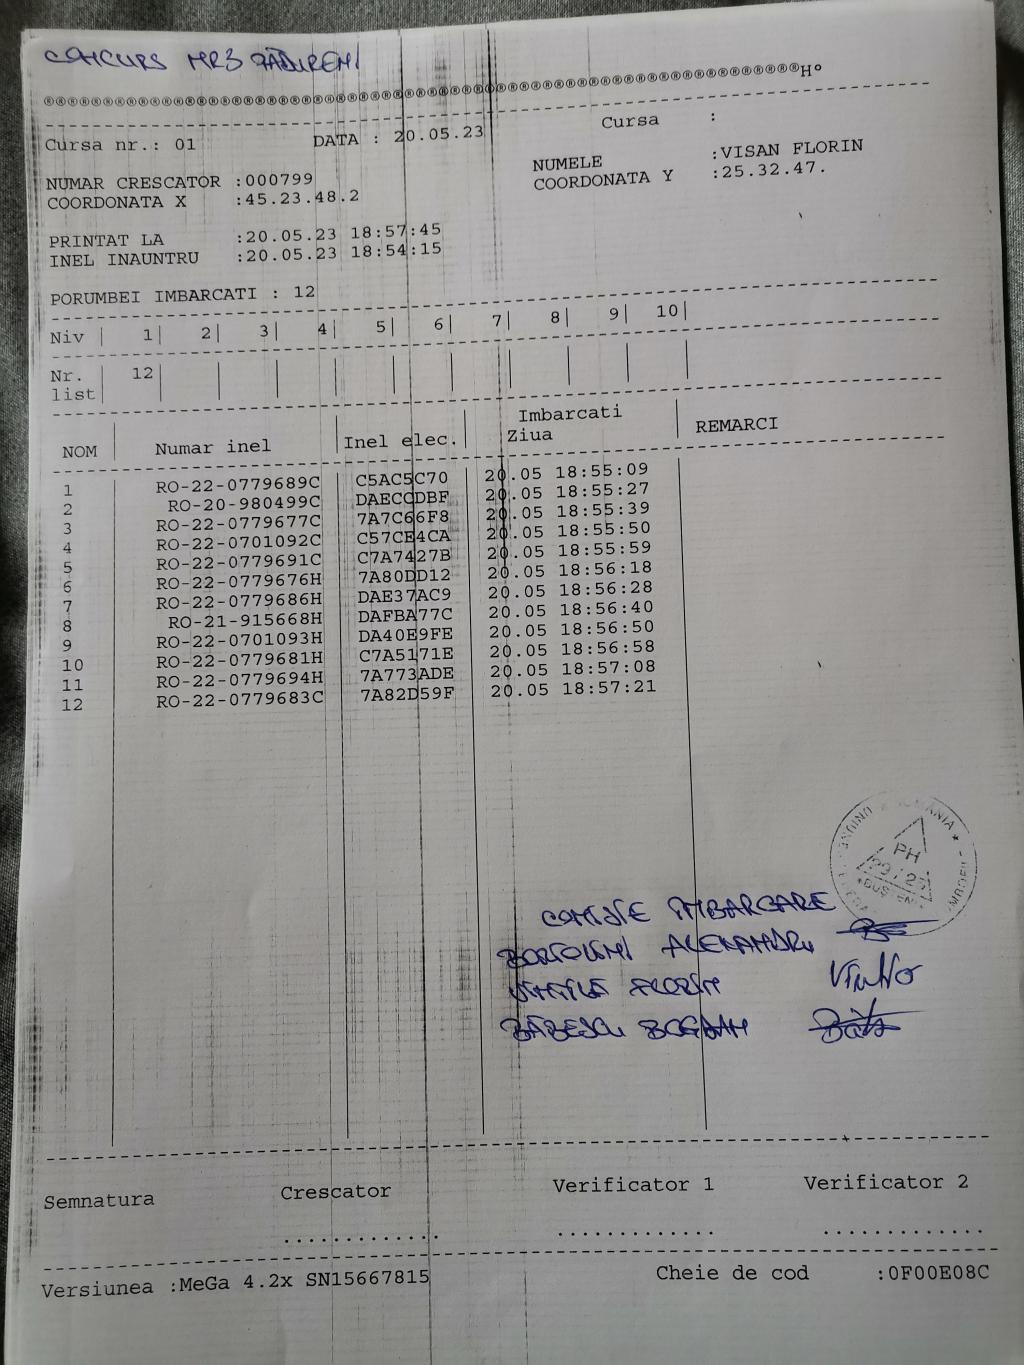 CONCURS MR3 PĂDURENI
®®®®®®®®®®®®®®®®®®®®®®®®®®®®®®®®®®®®®®®®®®®®®®®®®®®®®®®®®®®®®®®®H°
Cursa nr.: 01 DATA : 20.05.23 Cursa :
NUMAR CRESCATOR :000799 NUMELE :VISAN FLORIN
COORDONATA X :45.23.48.2 COORDONATA Y :25.32.47.
PRINTAT LA :20.05.23 18:57:45
INEL INAUNTRU :20.05.23 18:54:15
PORUMBEI IMBARCATI : 12
Niv | 1| 2| 3| 4| 5| 6| 7| 8| 9| 10|
Nr. | 12| | | | | | | | | |
list
NOM Numar inel Inel elec. Imbarcati REMARCI
Ziua
1 RO-22-0779689C C5AC5C70 20.05 18:55:09
2 RO-20-980499C DAECCDBF 20.05 18:55:27
3 RO-22-0779677C 7A7C66F8 20.05 18:55:39
4 RO-22-0701092C C57CE4CA 20.05 18:55:50
5 RO-22-0779691C C7A7427B 20.05 18:55:59
6 RO-22-0779676H 7A80DD12 20.05 18:56:18
7 RO-22-0779686H DAE37AC9 20.05 18:56:28
8 RO-21-915668H DAFBA77C 20.05 18:56:40
9 RO-22-0701093H DA40E9FE 20.05 18:56:50
10 RO-22-0779681H C7A5171E 20.05 18:56:58
11 RO-22-0779694H 7A773ADE 20.05 18:57:08
12 RO-22-0779683C 7A82D59F 20.05 18:57:21
PH
BUSTENI
IMBARCARE
FLORIN
BĂBESCU BOGDAN
Semnatura Crescator Verificator 1 Verificator 2
Versiunea :MeGa 4.2x SN15667815 Cheie de cod :0F00E08C